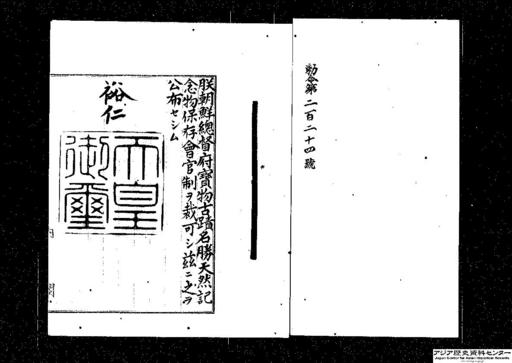 勅令第二百二十四號
朕朝鮮總督府寶物古蹟名勝天然記
念物保存會官制ヲ裁可シ茲ニ之ヲ
公布セシム
裕仁
天皇
御璽
内閣
アジア歴史資料センター
Japan Center for Asian Historical Records